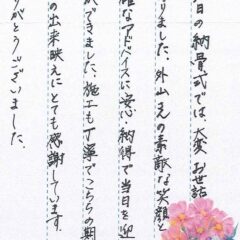 日の納骨式では、大変お世話
りました。外山さんの素敵な笑顔と
確なアドバイスに安心、納得で当日を迎
ができました。施工も丁寧でこちらの期
の出来映えにとても感謝しています。
りがとうございました。